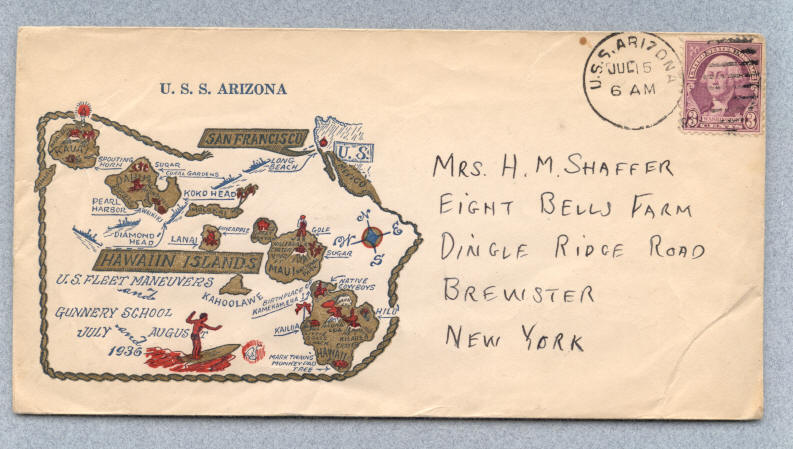 U. S. S. ARIZONA
U.S.S. ARIZONA
JUL 15
6 AM
3 3
SAN FRANCISCO
U.S.
MEXICO
LONG BEACH
KAUAI
SPOUTING HORN
SUGAR
CORAL GARDENS
KOKO HEAD
PEARL HARBOR
WAIKIKI
DIAMOND HEAD
MOLOKAI
LANAI
PINEAPPLE
GOLF
SUGAR
MAUI
N
E
W
S
HAWAIIN ISLANDS
KAHOOLAWE
NATIVE COWBOYS
BIRTHPLACE OF
KAMEHAMEHA 1st
HILO
KAILUA
HAWAII
MARK TWAINS
MONKEY POD
TREE
U.S. FLEET MANEUVERS
and
GUNNERY SCHOOL
JULY and AUGUST
1936
MRS. H. M. SHAFFER
EIGHT BELLS FARM
DINGLE RIDGE ROAD
BREWSTER
NEW YORK